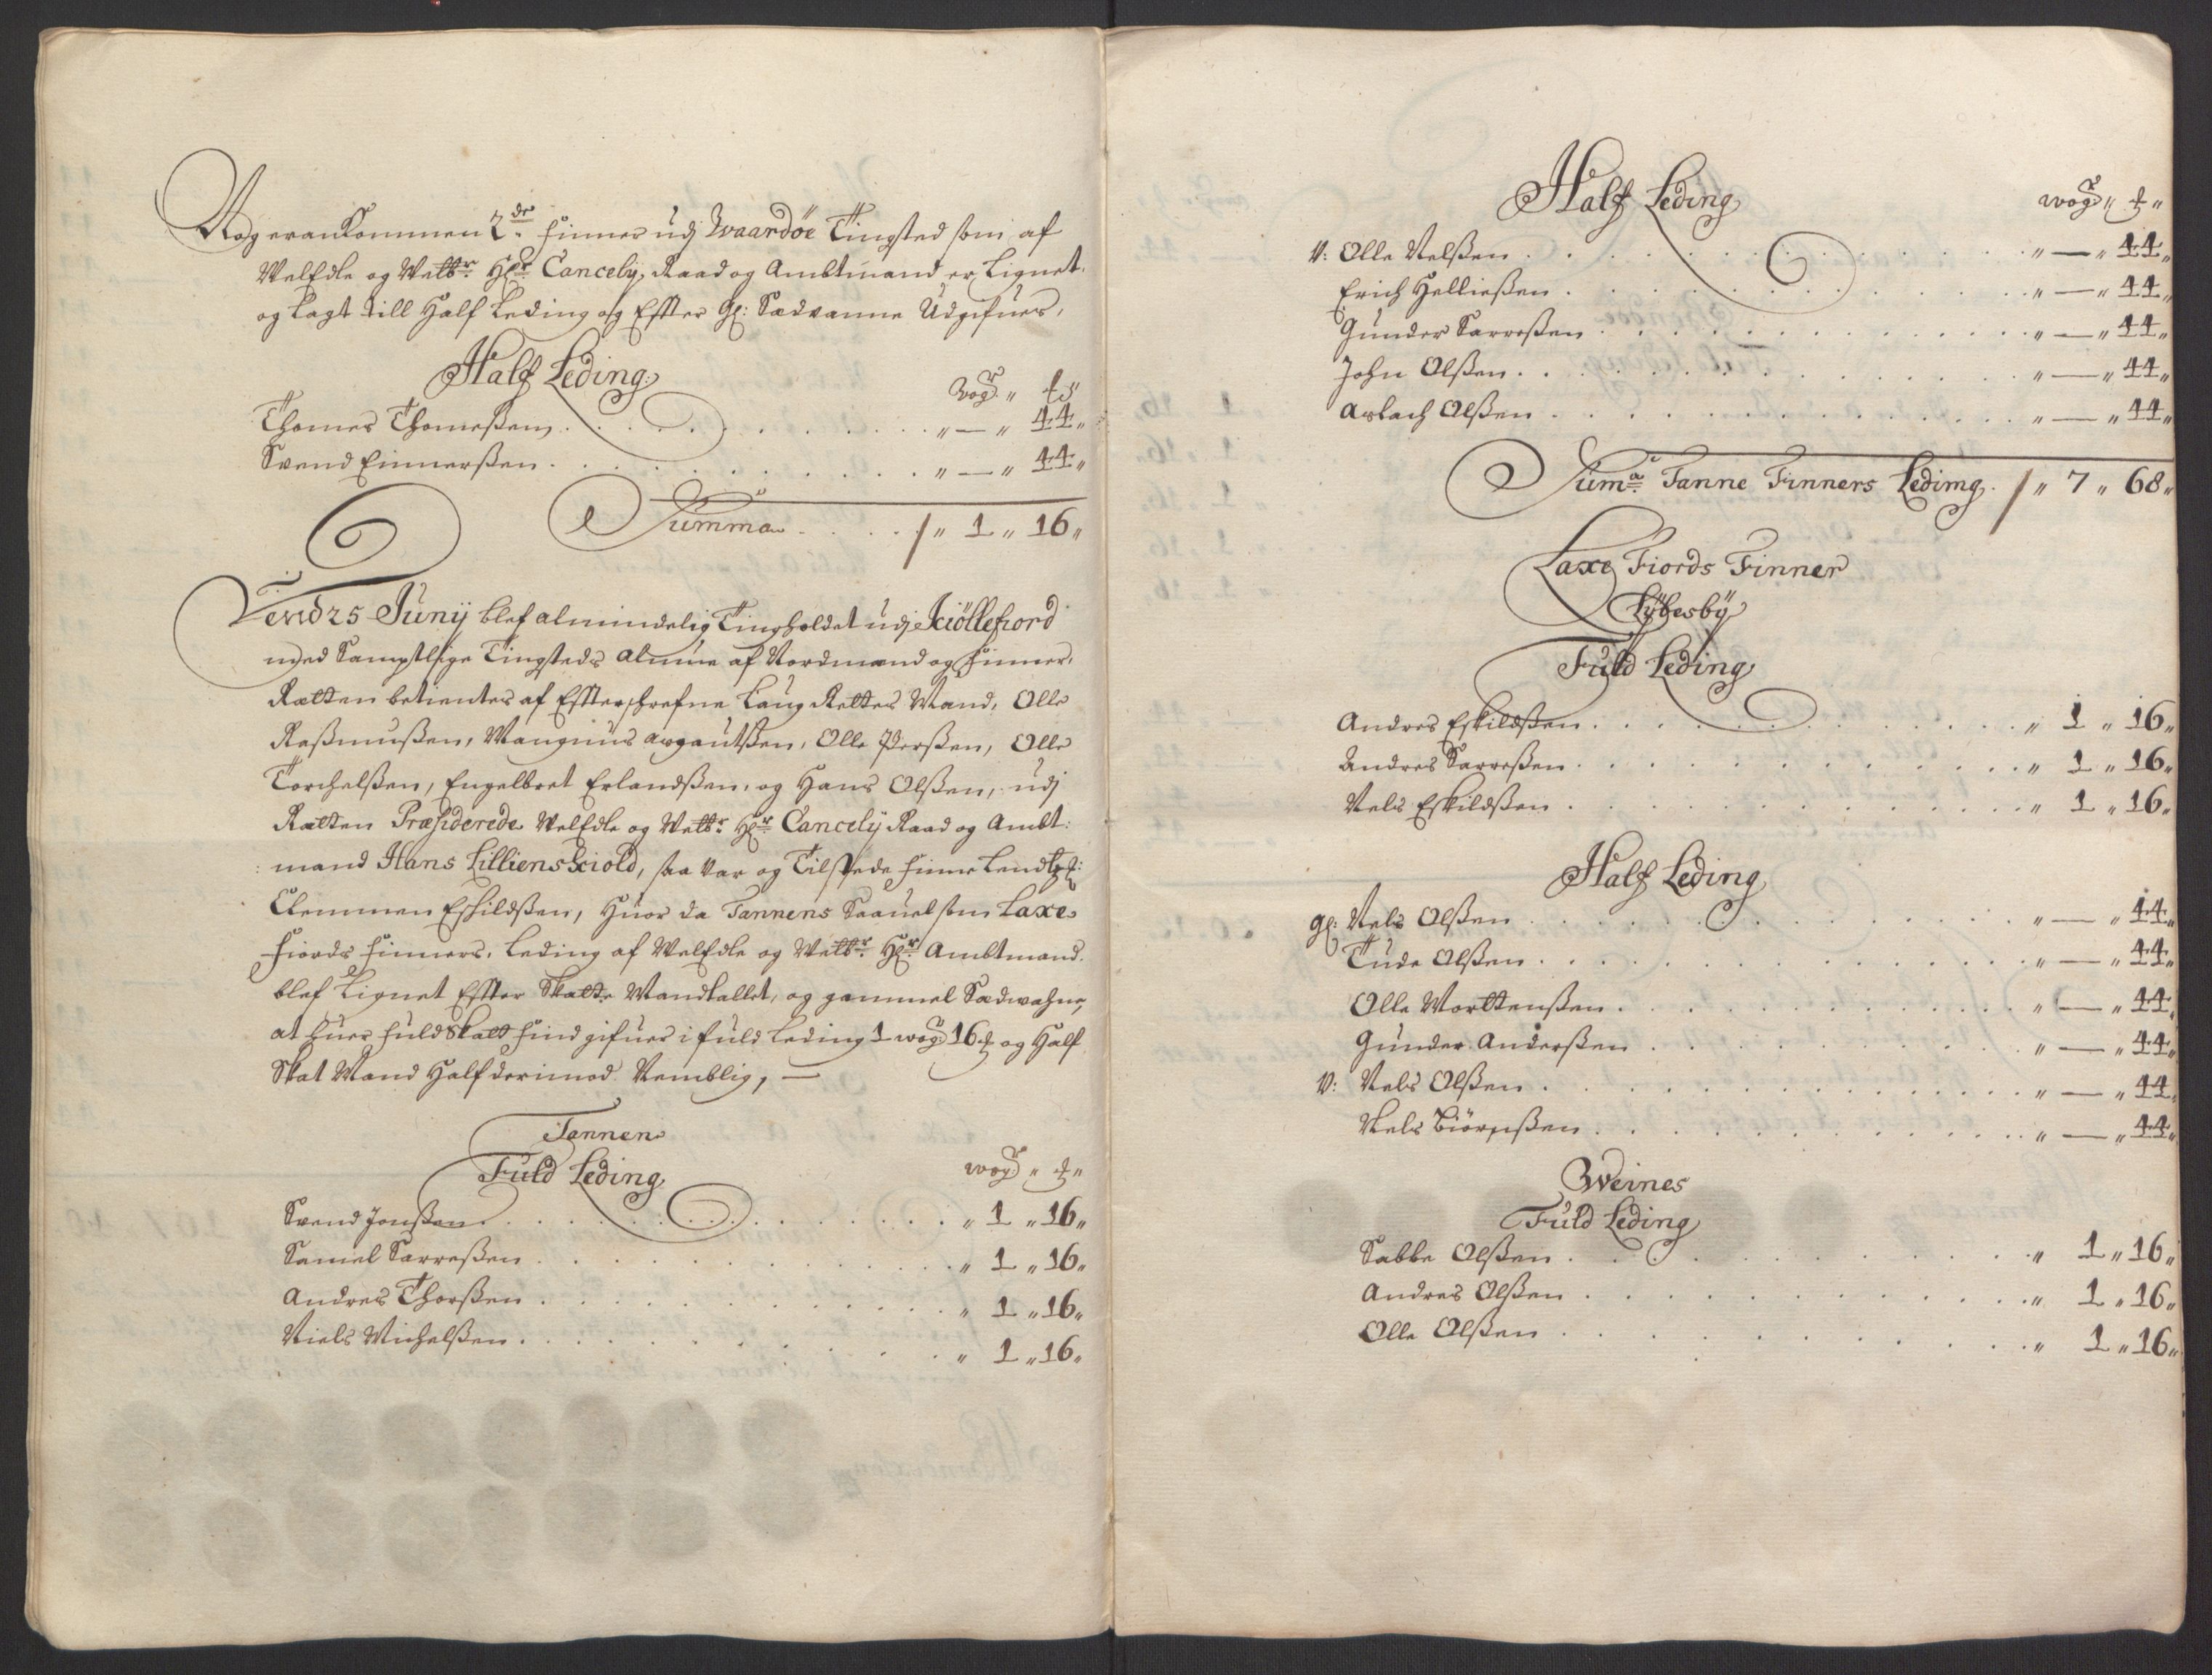 Nog er ankommen 2de finner udj Waardöe Tingsted som af
WelEdle og Welbr. Hr. Cancely Raad og Ambtmand er Lignet
og Lagt till Half Leding og Effter gl: Sædvanne Udgifuer,
Half Leding
wogr " ℔
Thomes Thomeßen . . . " — " 44 "
Svend Einnerßen . . . " — " 44 "
Summa . . . " 1 " 16 "
Dend 25 Junij blef almindelig Ting holdet udj Kiöllefiord
med Samptlige Tingsteds almue af Nordmænd og finner,
Rætten betientes af Effterschrefne Laug Rettes Mænd, Olle
Raßmußen, Mangnus argoutßen, Olle Perßen, Olle
Torchelßen, Engelbret Erlandßen, og Hans Olßen, udj
Rætten Præsiderede WelEdle og Welbr. Hr. Cancelÿ Raad og Ambt:
mand Hans Lilliensciold, saa var og Tilstede finne Lendß:
Clemmen Eskildßen, Huor da Tannens Saauel som Laxe
fiords finners, Leding af WelEdle og Welbr. Hr. Ambtmand
blef Lignet Effter Skatte Mandtallet, og gammel Sædwahne,
at huer fuld Skatt find gifuer i fuld Leding 1 wogr 16 ℔ og Half
Skat Mand Half derimod Nemblig, —
Tannen
Fuld Leding
wogr " ℔ "
Svend Jonßen . . . " 1 " 16 "
Samiel Sarreßen . . . " 1 " 16 "
Andres Thorßen . . . " 1 " 16 "
Niels Michelßen . . . " 1 " 16 "
Half Leding
wogr " ℔ "
V: Olle Nelßen . . . " — " 44 "
Erich Helließen . . . " — " 44 "
Gunder Sarreßen . . . " — " 44 "
John Olßen . . . " — " 44 "
Aslach Olßen . . . " — " 44 "
Suma Tanne Finners Leding . " 7 " 68 "
Laxe Fiords Finner
Lÿbesbÿ
Fuld Leding
Andres Eskildßen . . . " 1 " 16 "
Andres Sarreßen . . . " 1 " 16 "
Nels Eskildßen . . . " 1 " 16 "
Half Leding
gl: Nels Olßen . . . " — " 44 "
Tude Olßen . . . " — " 44 "
Olle Morttenßen . . . " — " 44 "
Gunder Anderßen . . . " — " 44 "
V: Nels Olßen . . . " — " 44 "
Nels Biörnßen . . . " — " 44 "
Weines
Fuld Leding
Sabbe Olßen . . . " 1 " 16 "
Andres Olßen . . . " 1 " 16 "
Olle Olßen . . . " 1 " 16 "